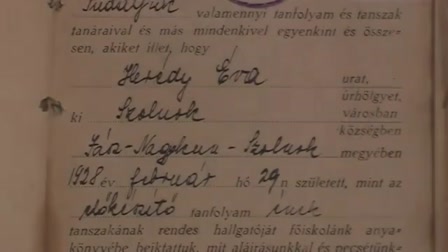 Tudatjuk valamennyi tanfolyam és tanszak
tanáraival és más mindenkivel egyenkint és össze-
sen, akiket illet, hogy
Herédy Éva urat,
úrhölgyet,
ki Szolnok városban
községben
Jász-Nagykun-Szolnok megyében
1928 év február hó 29 n született, mint az
előkészító tanfolyam ének
tanszakának rendes hallgatóját főiskolánk anya-
könyvébe beiktattuk, mit aláírásunkkal és pecsétünk-